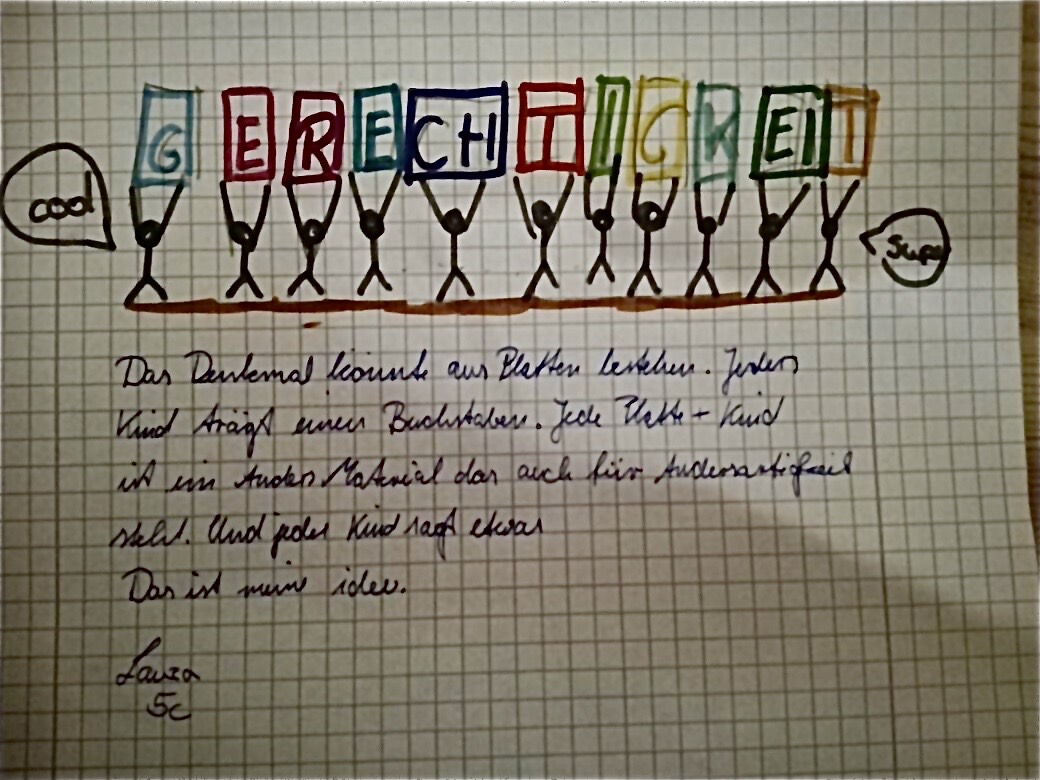 GERECHTICKEIT
cool
Supe
Das Denkmal könnte aus Platten bestehen. Jedes
Kind trägt einen Buchstaben. Jede Platte + Kind
ist ein Anders Material das auch für Andersartigkeit
steht. Und jedes Kind sagt etwas
Das ist meine idee.
Laura
5c